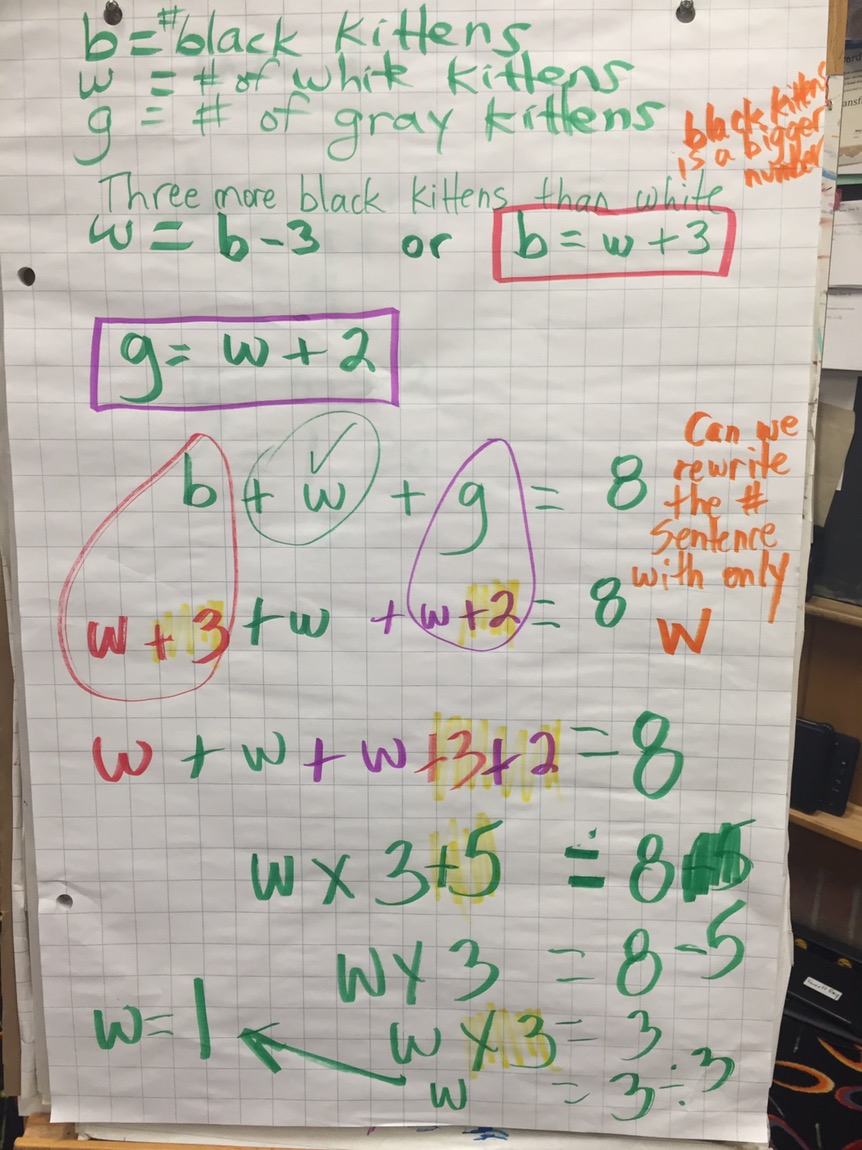 b = # black kittens
w = # of white kittens
g = # of gray kittens
black kittens
is a bigger
number
Three more black kittens than white
w = b - 3 or b = w + 3
g = w + 2
b + w + g = 8
✓
Can we
rewrite
the #
sentence
with only
w
w + 3 + w + w + 2 = 8
w + w + w + 3 + 2 = 8
w x 3 + 5 = 8
w x 3 = 8 - 5
w x 3 = 3
w = 3 ÷ 3
w = 1